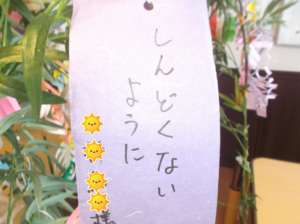 しんどくない
ように
様